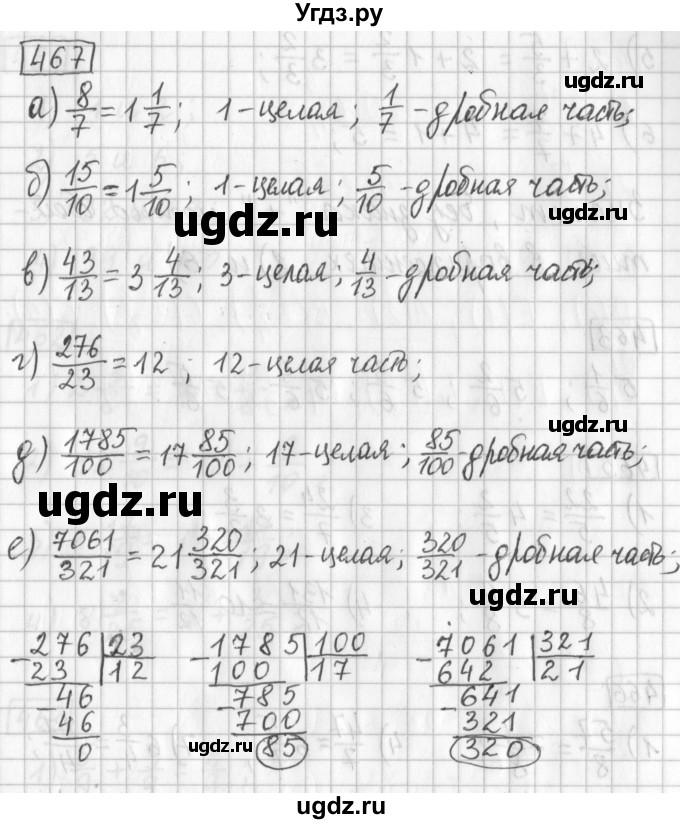 Угдз.ру
467
ugdz.ru
а) 8/7 = 1 1/7; 1-целая; 1/7 -дробная часть;
б) 15/10 = 1 5/10; 1-целая; 5/10 -дробная часть;
ugdz.ru
ugdz.ru
в) 43/13 = 3 4/13; 3-целая; 4/13 -дробная часть;
г) 276/23 = 12; 12-целая часть;
ugdz.ru
д) 1785/100 = 17 85/100; 17-целая; 85/100 -дробная часть;
ugdz.ru
е) 7061/321 = 21 320/321; 21-целая; 320/321 -дробная часть;
ugdz.ru
-276 |23 -1785 |100 -7061 |321
23 |12 100 |17 642 |21
-46 -785 -641
46 700 321
0 85 320
ugdz.ru
ugdz.ru
ugdz.ru